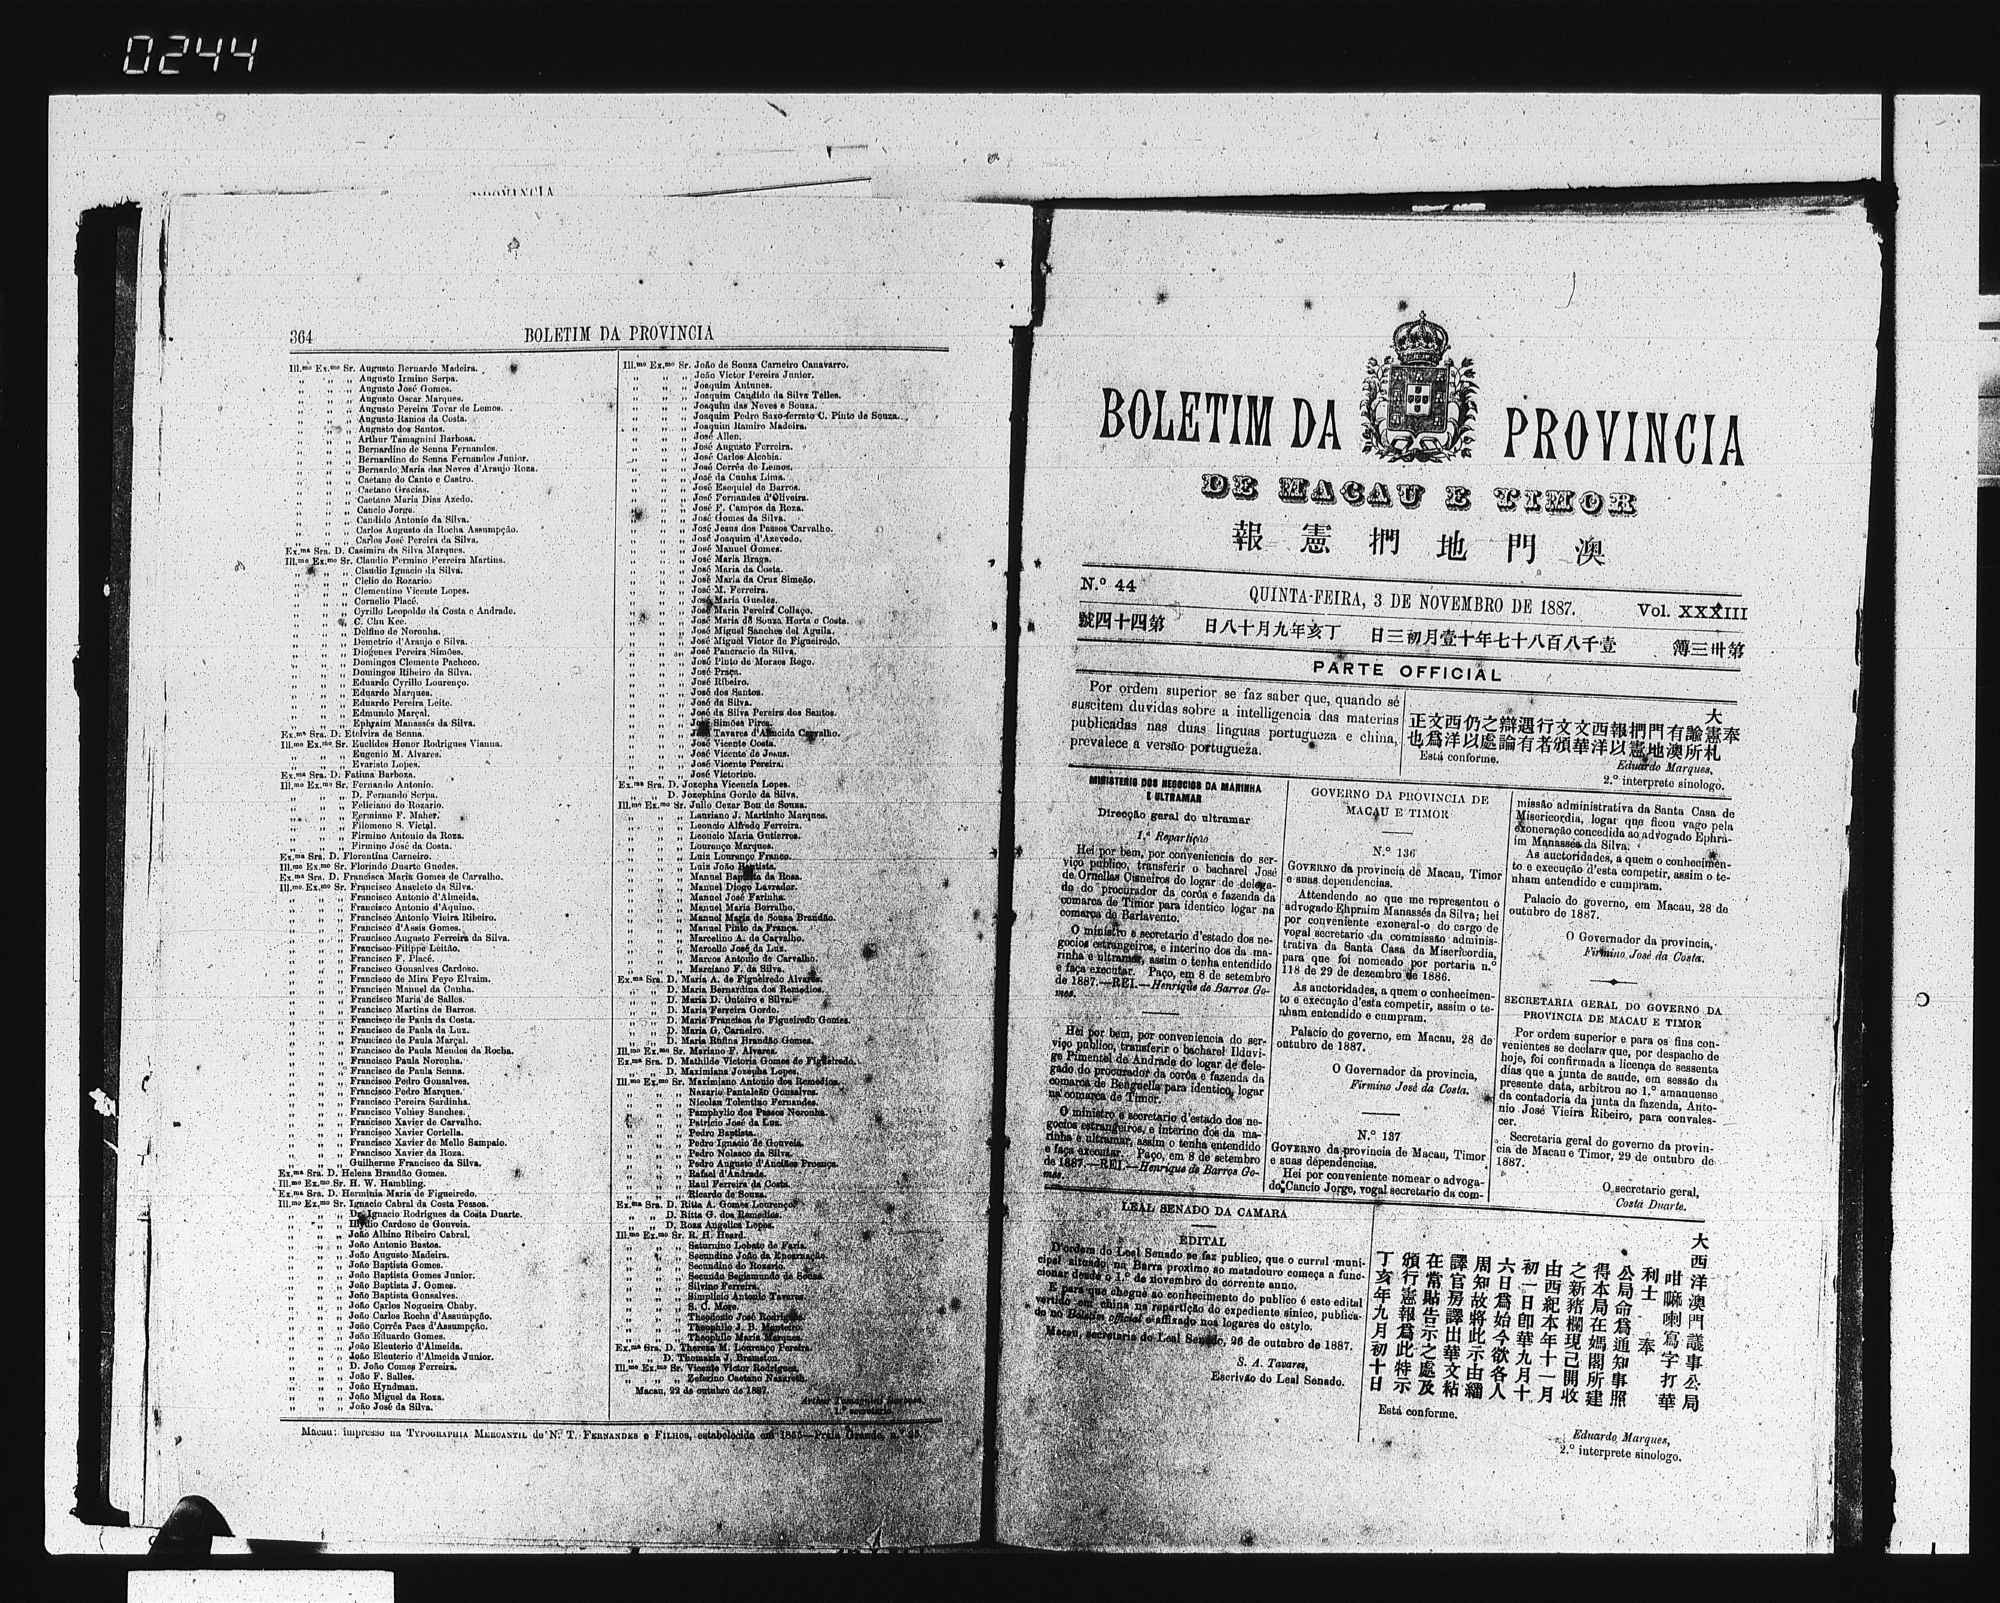 0244
364
BOLETIM DA PROVINCIA
Ill.mo Ex.mo Sr. Augusto Bernardo Madeira.
„ „ „ Augusto Izmino Serpa.
„ „ „ Augusto José Gomes.
„ „ „ Augusto Oscar Marques.
„ „ „ Augusto Pereira Tovar de Lemos.
„ „ „ Augusto Ramos da Costa.
„ „ „ Augusto dos Santos.
„ „ „ Arthur Tamagnini Barbosa.
„ „ „ Bernardino de Senna Fernandes.
„ „ „ Bernardino de Senna Fernandes Junior.
„ „ „ Bernardo Maria das Neves d'Araujo Roza.
„ „ „ Caetano do Canto e Castro.
„ „ „ Caetano Gracias.
„ „ „ Caetano Maria Dias Azedo.
„ „ „ Cancio Jorge.
„ „ „ Candido Antonio da Silva.
„ „ „ Carlos Augusto da Rocha Assumpção.
„ „ „ Carlos José Pereira da Silva.
Ex.ma Sra. D. Casimira da Silva Marques.
Ill.mo Ex.mo Sr. Claudio Fermino Ferreira Martins.
„ „ „ Claudio Ignacio da Silva.
„ „ „ Clelio do Rozario.
„ „ „ Clementino Vicente Lopes.
„ „ „ Cornelio Placé.
„ „ „ Cyrillo Leopoldo da Costa e Andrade.
„ „ „ C. Chu Kee.
„ „ „ Delfino de Noronha.
„ „ „ Demetrio d'Araujo e Silva.
„ „ „ Diogenes Pereira Simões.
„ „ „ Domingos Clemente Pacheco.
„ „ „ Domingos Ribeiro da Silva.
„ „ „ Eduardo Cyrillo Lourenço.
„ „ „ Eduardo Marques.
„ „ „ Eduardo Pereira Leite.
„ „ „ Edmundo Marçal.
„ „ „ Ephraim Manassés da Silva.
Ex.ma Sra. D. Etelvira de Senna.
Ill.mo Ex.mo Sr. Euclides Honor Rodrigues Vianna.
„ „ „ Eugenio M. Alvares.
„ „ „ Evaristo Lopes.
Ex.ma Sra. D. Fatima Barboza.
Ill.mo Ex.mo Sr. Fernando Antonio.
„ „ „ D. Fernando Serpa.
„ „ „ Feliciano do Rozario.
„ „ „ Fermiano F. Maher.
„ „ „ Filomeno S. Victal.
„ „ „ Firmino Antonio da Roza.
„ „ „ Firmino José da Costa.
Ex.ma Sra. D. Florentina Carneiro.
Ill.mo Ex.mo Sr. Florindo Duarte Guedes.
Ex.ma Sra. D. Francisca Maria Gomes de Carvalho.
Ill.mo Ex.mo Sr. Francisco Anacleto da Silva.
„ „ „ Francisco Antonio d'Almeida.
„ „ „ Francisco Antonio d'Aquino.
„ „ „ Francisco Antonio Vieira Ribeiro.
„ „ „ Francisco d'Assis Gomes.
„ „ „ Francisco Augusto Ferreira da Silva.
„ „ „ Francisco Filippe Leitão.
„ „ „ Francisco F. Placé.
„ „ „ Francisco Gonsalves Cardoso.
„ „ „ Francisco de Mira Feyo Elvaim.
„ „ „ Francisco Manuel da Cunha.
„ „ „ Francisco Maria de Salles.
„ „ „ Francisco Martins de Barros.
„ „ „ Francisco de Paula da Costa.
„ „ „ Francisco de Paula da Luz.
„ „ „ Francisco de Paula Marçal.
„ „ „ Francisco de Paula Mendes da Rocha.
„ „ „ Francisco Paula Noronha.
„ „ „ Francisco de Paula Senna.
„ „ „ Francisco Pedro Gonsalves.
„ „ „ Francisco Pedro Marques.
„ „ „ Francisco Pereira Sardinha.
„ „ „ Francisco Volney Sanches.
„ „ „ Francisco Xavier de Carvalho.
„ „ „ Francisco Xavier Cortella.
„ „ „ Francisco Xavier de Mello Sampaio.
„ „ „ Francisco Xavier da Roza.
„ „ „ Guilherme Francisco da Silva.
Ex.ma Sra. D. Helena Brandão Gomes.
Ill.mo Ex.mo Sr. H. W. Hambling.
Ex.ma Sra. D. Herminia Maria de Figueiredo.
Ill.mo Ex.mo Sr. Ignacio Cabral da Costa Pessoa.
„ „ „ Dr. Ignacio Rodrigues da Costa Duarte.
„ „ „ Illydio Cardoso de Gouveia.
„ „ „ João Albino Ribeiro Cabral.
„ „ „ João Antonio Bastos.
„ „ „ João Augusto Madeira.
„ „ „ João Baptista Gomes.
„ „ „ João Baptista Gomes Junior.
„ „ „ João Baptista J. Gomes.
„ „ „ João Baptista Gonsalves.
„ „ „ João Carlos Nogueira Chaby.
„ „ „ João Carlos Rocha d'Assumpção.
„ „ „ João Corrêa Paes d'Assumpção.
„ „ „ João Eduardo Gomes.
„ „ „ João Eleuterio d'Almeida.
„ „ „ João Eleuterio d'Almeida Junior.
„ „ „ D. João Comes Ferreira.
„ „ „ João F. Salles.
„ „ „ João Hyndman.
„ „ „ João Miguel da Roza.
„ „ „ João José da Silva.
Ill.mo Ex.mo Sr. João de Souza Carneiro Canavarro.
„ „ „ João Victor Pereira Junior.
„ „ „ Joaquim Antunes.
„ „ „ Joaquim Candido da Silva Telles.
„ „ „ Joaquim das Neves e Souza.
„ „ „ Joaquim Pedro Saxo-ferrato C. Pinto de Souza.
„ „ „ Joaquim Ramiro Madeira.
„ „ „ José Allen.
„ „ „ José Augusto Ferreira.
„ „ „ José Carlos Alcobia.
„ „ „ José Corrêa de Lemos.
„ „ „ José da Cunha Lima.
„ „ „ José Esequiel de Barros.
„ „ „ José Fernandes d'Oliveira.
„ „ „ José F. Campos da Roza.
„ „ „ José Gomes da Silva.
„ „ „ José Jesus dos Passos Carvalho.
„ „ „ José Joaquim d'Azevedo.
„ „ „ José Manuel Gomes.
„ „ „ José Maria Braga.
„ „ „ José Maria da Costa.
„ „ „ José Maria da Cruz Simeão.
„ „ „ José M. Ferreira.
„ „ „ José Maria Guedes.
„ „ „ José Maria Pereira Collaço.
„ „ „ José Maria de Souza Horta e Costa.
„ „ „ José Miguel Sanches del Aguila.
„ „ „ José Miguel Victor de Figueiredo.
„ „ „ José Pancracio da Silva.
„ „ „ José Pinto de Moraes Rego.
„ „ „ José Praça.
„ „ „ José Ribeiro.
„ „ „ José dos Santos.
„ „ „ José da Silva.
„ „ „ José da Silva Pereira dos Santos.
„ „ „ José Simões Pires.
„ „ „ José Tavares d'Almeida Carvalho.
„ „ „ José Vicente Costa.
„ „ „ José Vicente de Jesus.
„ „ „ José Vicente Pereira.
„ „ „ José Victorino.
Ex.ma Sra. D. Jozepha Vicencia Lopes.
„ „ D. Jozephina Gordo da Silva.
Ill.mo Ex.mo Sr. Julio Cezar Bon de Sousa.
„ „ „ Lauriano J. Martinho Marques.
„ „ „ Leoncio Alfredo Ferreira.
„ „ „ Leoncio Maria Gutierres.
„ „ „ Lourenço Marques.
„ „ „ Luiz Lourenço Franco.
„ „ „ Luiz João Baptista.
„ „ „ Manuel Baptista da Rosa.
„ „ „ Manuel Diogo Lavrador.
„ „ „ Manuel José Farinha.
„ „ „ Manuel Maria Borralho.
„ „ „ Manuel Maria de Sousa Brandão.
„ „ „ Manuel Pinto da França.
„ „ „ Marcelino A. de Carvalho.
„ „ „ Marcello José da Luz.
„ „ „ Marcos Antonio de Carvalho.
„ „ „ Marciano F. da Silva.
Ex.ma Sra. D. Maria A. de Figueiredo Alvares.
„ „ D. Maria Bernardina dos Remedios.
„ „ D. Maria D. Outeiro e Silva.
„ „ D. Maria Ferreira Gordo.
„ „ D. Maria Francisca de Figueiredo Gomes.
„ „ D. Maria G. Carneiro.
„ „ D. Maria Rufina Brandão Gomes.
Ill.mo Ex.mo Sr. Mariano F. Alvares.
Ex.ma Sra. D. Mathilde Victoria Gomes de Figueiredo.
„ „ D. Maximiana Jozepha Lopes.
Ill.mo Ex.mo Sr. Maximiano Antonio dos Remedios.
„ „ „ Nazario Pantaleão Gonsalves.
„ „ „ Nicolau Tolentino Fernandes.
„ „ „ Pamphylio dos Passos Noronha.
„ „ „ Patricio José da Luz.
„ „ „ Pedro Baptista.
„ „ „ Pedro Ignacio de Gouveia.
„ „ „ Pedro Nolasco da Silva.
„ „ „ Pedro Augusto d'Anciães Proença.
„ „ „ Rafael d'Andrade.
„ „ „ Raul Ferreira da Costa.
„ „ „ Ricardo de Souza.
Ex.ma Sra. D. Ritta A. Gomes Lourenço.
„ „ D. Ritta G. dos Remedios.
„ „ D. Roza Angelica Lopes.
Ill.mo Ex.mo Sr. R. H. Heard.
„ „ „ Saturnino Lobato de Faria.
„ „ „ Secundino João da Encarnação.
„ „ „ Secundino do Rozario.
„ „ „ Secundo Segismundo de Souza.
„ „ „ Silvino Ferreira.
„ „ „ Simplicio Antonio Tavares.
„ „ „ S. C. More.
„ „ „ Theodosio José Rodrigues.
„ „ „ Theophilo J. B. Monteiro.
„ „ „ Theophilo Maria Marques.
Ex.ma Sra. D. Thereza M. Lourenço Pereira.
„ „ D. Thomazia J. Bramston.
Ill.mo Ex.mo Sr. Vicente Victor Rodrigues.
„ „ „ Zeferino Caetano Nazareth.
Macau, 22 de outubro de 1887.
Arthur Tamagnini Barbosa,
1.º secretario.
Macau: impresso na TYPOGRAPHIA MERCANTIL de N. T. FERNANDES e FILHOS, estabelecida em 1855—Praia Grande, n.º 35.
BOLETIM DA PROVINCIA
DE MACAU E TIMOR
報憲捫地門澳
N.º 44
QUINTA-FEIRA, 3 DE NOVEMBRO DE 1887.
Vol. XXXIII
號四十四第
日八十月九年亥丁
日三初月壹十年七十八百八千壹
簿三卅第
PARTE OFFICIAL
Por ordem superior se faz saber que, quando se
suscitem duvidas sobre a intelligencia das materias
publicadas nas duas linguas portugueza e china,
prevalece a versão portugueza.
大
正文西仍之辯遇行文文西報捫門有諭憲奉
也爲洋以處論有者頒華洋以憲地澳所札
Está conforme.
Eduardo Marques,
2.º interprete sinologo.
MINISTERIO DOS NEGOCIOS DA MARINHA
E ULTRAMAR
Direcção geral do ultramar
1.ª Repartição
Hei por bem, por conveniencia do ser-
viço publico, transferir o bacharel José
de Ornellas Cisneiros do logar de delega-
do do procurador da corôa e fazenda da
comarca de Timor para identico logar na
comarca de Barlavento.
O ministro e secretario d'estado dos ne-
gocios estrangeiros, e interino dos da ma-
rinha e ultramar, assim o tenha entendido
e faça executar. Paço, em 8 de setembro
de 1887.—REI.—Henrique de Barros Go-
mes.
Hei por bem, por conveniencia do ser-
viço publico, transferir o bacharel Ilduvi-
ge Pimentel de Andrade do logar de dele-
gado do procurador da corôa e fazenda da
comarca de Benguella para identico logar
na comarca de Timor.
O ministro e secretario d'estado dos ne-
gocios estrangeiros, e interino dos da ma-
rinha e ultramar, assim o tenha entendido
e faça executar. Paço, em 8 de setembro
de 1887.—REI.—Henrique de Barros Go-
mes.
GOVERNO DA PROVINCIA DE
MACAU E TIMOR
N.º 136
GOVERNO da provincia de Macau, Timor
e suas dependencias.
Attendendo ao que me representou o
advogado Ehpraim Manassés da Silva; hei
por conveniente exoneral-o do cargo de
vogal secretario da commissão adminis-
trativa da Santa Casa da Misericordia,
para que foi nomeado por portaria n.º
118 de 29 de dezembro de 1886.
As auctoridades, a quem o conhecimen-
to e execução d'esta competir, assim o te-
nham entendido e cumpram.
Palacio do governo, em Macau, 28 de
outubro de 1887.
O Governador da provincia,
Firmino José da Costa.
N.º 137
GOVERNO da provincia de Macau, Timor
e suas dependencias.
Hei por conveniente nomear o advoga-
do Cancio Jorge, vogal secretario da com-
missão administrativa da Santa Casa de
Misericordia, logar que ficou vago pela
exoneração concedida ao advogado Ephra-
im Manassés da Silva.
As auctoridades, a quem o conhecimen-
to e execução d'esta competir, assim o te-
nham entendido e cumpram.
Palacio do governo, em Macau, 28 de
outubro de 1887.
O Governador da provincia,
Firmino José da Costa.
SECRETARIA GERAL DO GOVERNO DA
PROVINCIA DE MACAU E TIMOR
Por ordem superior e para os fins con-
venientes se declara que, por despacho de
hoje, foi confirmada a licença de sessenta
dias que a junta de saude, em sessão da
presente data, arbitrou ao 1.º amanuense
da contadoria da junta da fazenda, Anto-
nio José Vieira Ribeiro, para convales-
cer.
Secretaria geral do governo da provin-
cia de Macau e Timor, 29 de outubro de
1887.
O secretario geral,
Costa Duarte.
LEAL SENADO DA CAMARA
EDITAL
D'ordem do Leal Senado se faz publico, que o curral muni-
cipal situado na Barra proximo ao matadouro começa a func-
cionar desde o 1.º de novembro do corrente anno.
E para que chegue ao conhecimento do publico é este edital
vertido em china na repartição do expediente sinico, publica-
do no Boletim official e affixado nos logares do estylo.
Macau, secretaria do Leal Senado, 26 de outubro de 1887.
S. A. Tavares,
Escrivão do Leal Senado.
大西洋澳門議事公局
咁嘛喇寫字打華
利士 奉
公局命爲通知事照
得本局在媽閣所建
之新豬欄現已開收
由西紀本年十一月
初一日卽華九月十
六日爲始今欲各人
周知故將此示由繙
譯官房譯出華文粘
在當貼告示之處及
頒行憲報爲此特示
丁亥年九月初十日
Está conforme.
Eduardo Marques,
2.º interprete sinologo.